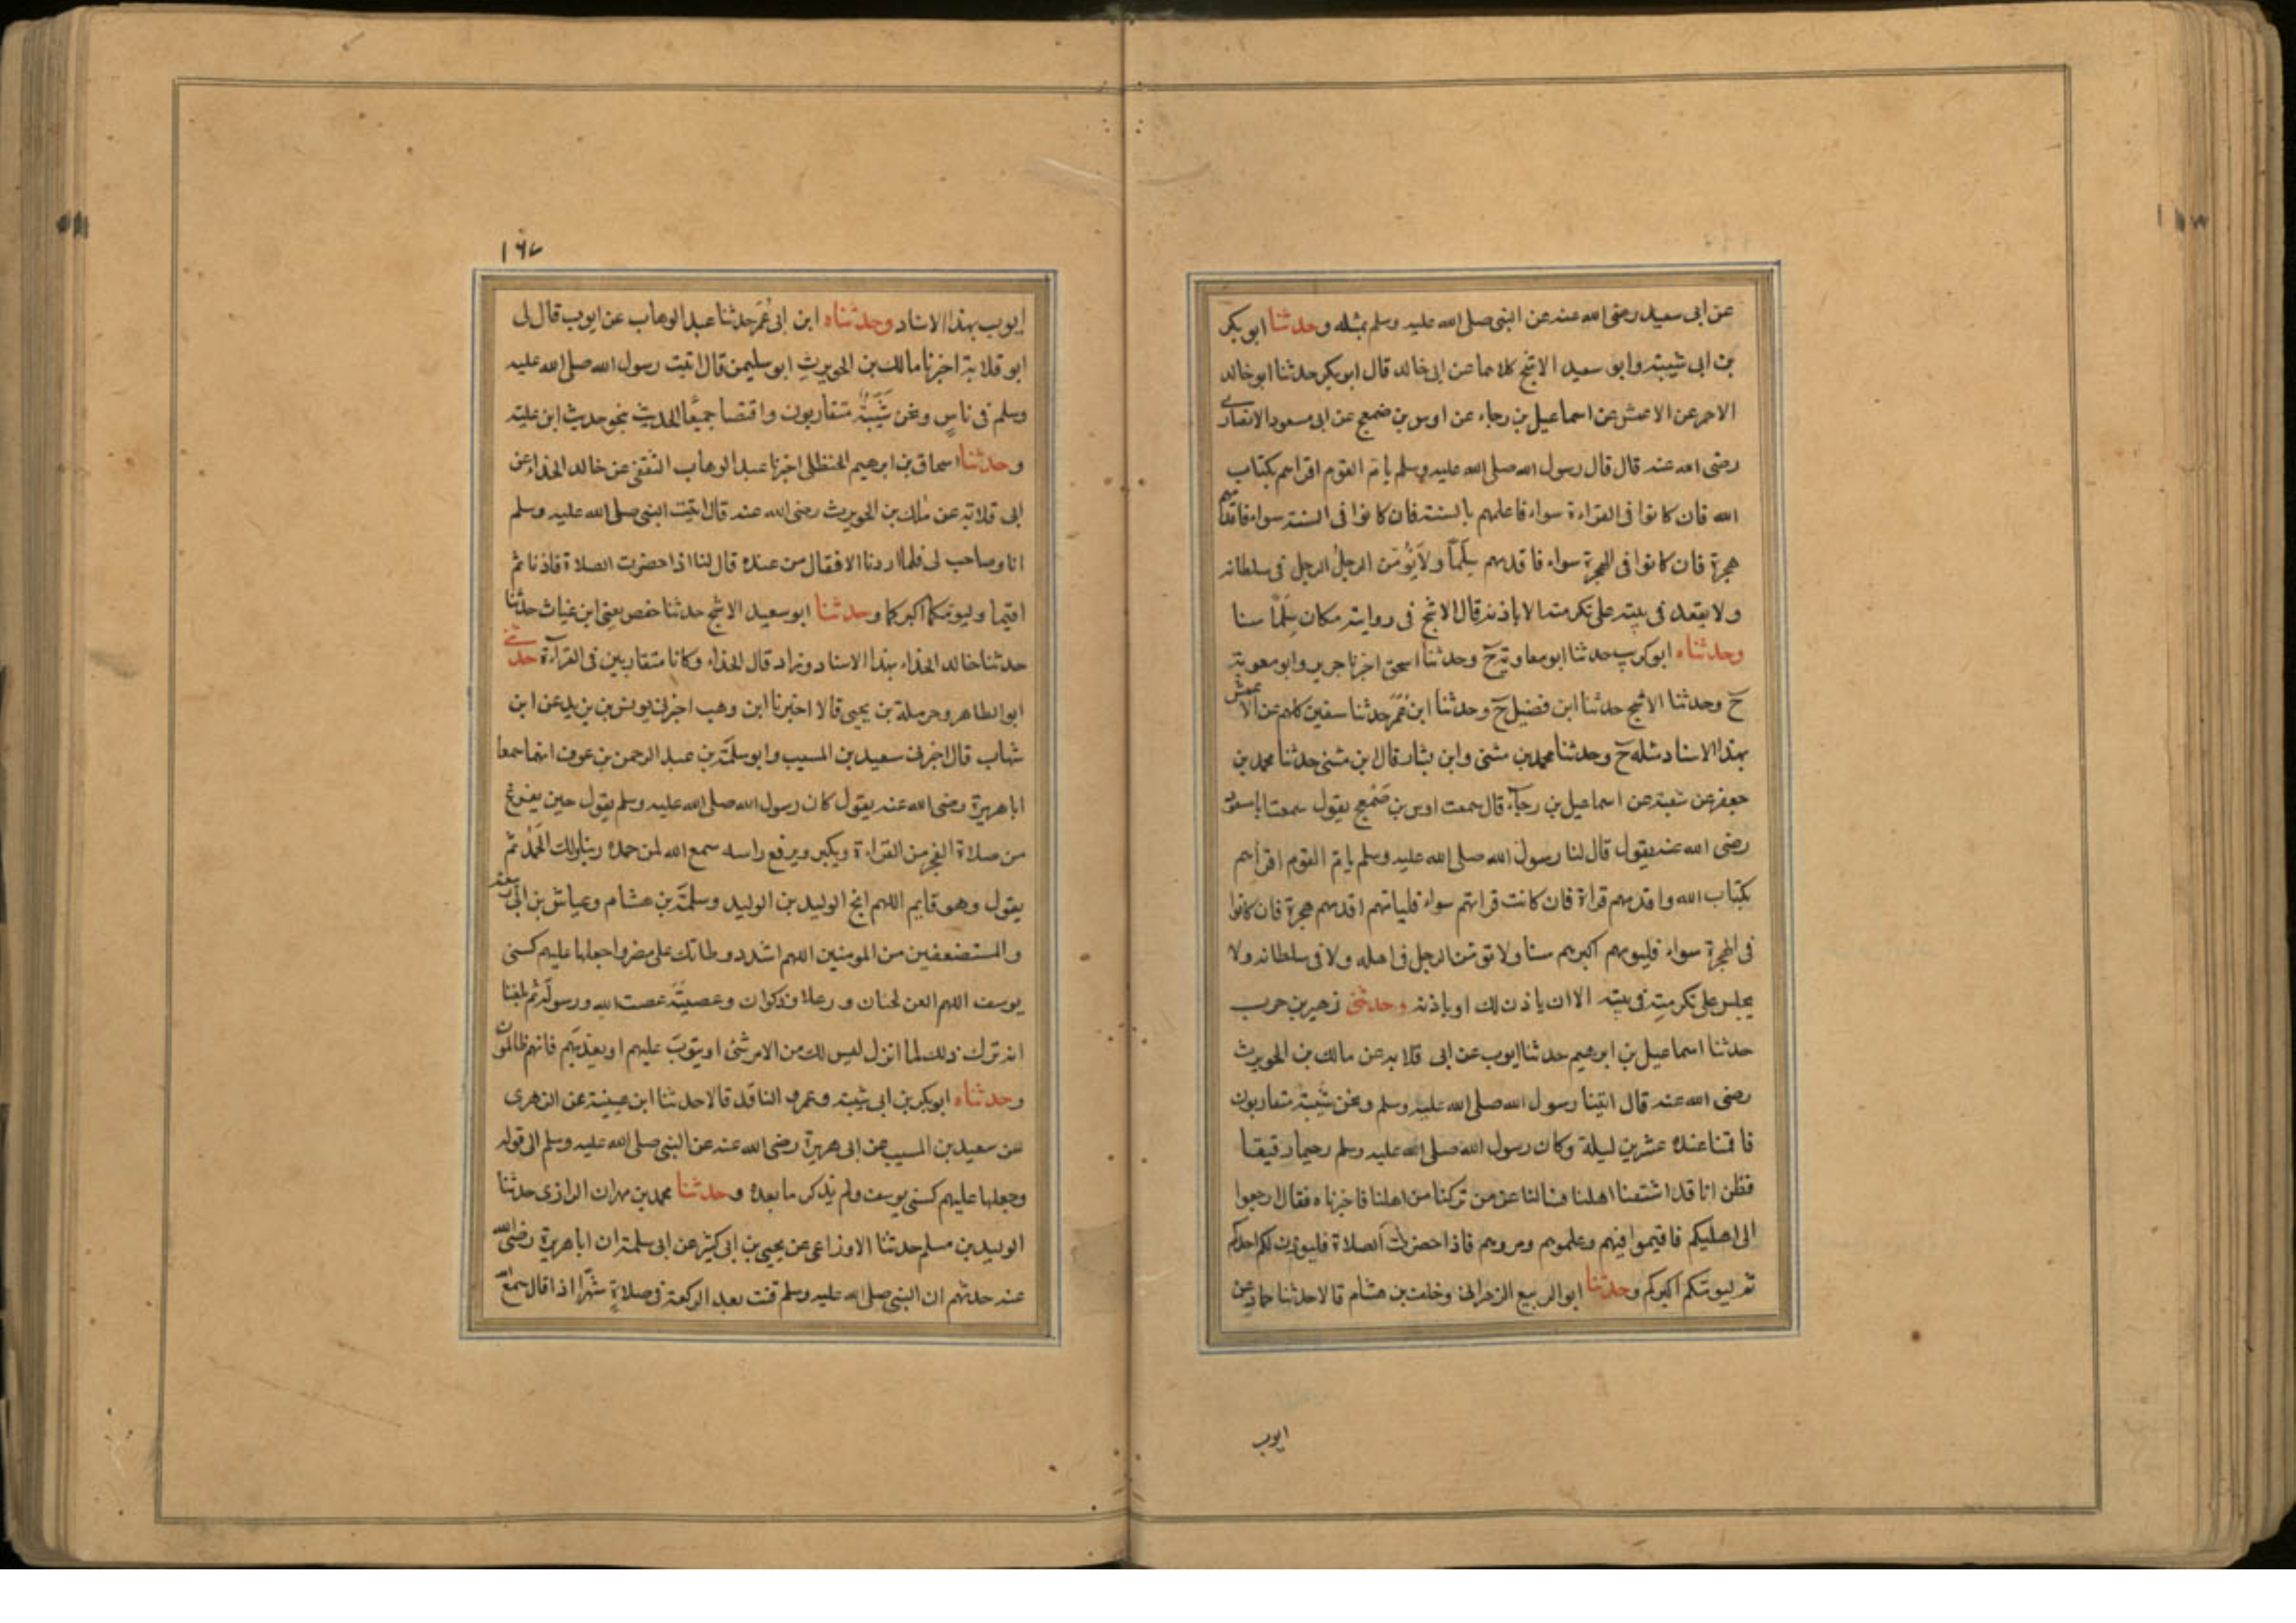 عن ابى سعيد رضى الله عنه عن النبى صلى الله عليه وسلم بمثله وحدثنا ابو بكر
بن ابى شيبة وابو سعيد الاشج كلاهما عن ابى خالد قال ابو بكر حدثنا ابو خالد
الاحمر عن الاعمش عن اسماعيل بن رجاء عن اوس بن ضمعج عن ابى مسعود الانصارى
رضى الله عنه قال قال رسول الله صلى الله عليه وسلم يام القوم اقراهم بكتاب
الله فان كانوا فى القراءة سواء فاعلمهم بالسنة فان كانوا فى السنة سواء فاقدمهم
هجرة فان كانوا فى الهجرة سواء فاقدمهم سِلْمًا ولا يؤمّن الرجلُ الرجل فى سلطانه
ولا يقعد فى بيته على تكرمته الا باذنه قال الاشج فى روايته مكان سِلْمًا سنا
وحدثناه ابو كريب حدثنا ابو معاوية ح وحدثنا اسحق اخبرنا جرير وابو معوية
ح وحدثنا الاشج حدثنا ابن فضيل ح وحدثنا ابن ابى عمر حدثنا سفين كلهم عن الاعمش
بهذا الاسناد مثله ح وحدثنا محمد بن مثنى وابن بشار قال ابن مثنى حدثنا محمد بن
جعفر عن شعبة عن اسماعيل بن رجآء قال سمعت اوس بن ضَمْعج يقول سمعت ابا مسعود
رضى الله عنه يقول قال لنا رسول الله صلى الله عليه وسلم يام القوم اقرأهم
بكتاب الله واقدمهم قراة فان كانت قراتهم سواء فليامهم اقدمهم هجرة فان كانوا
فى الهجرة سواء فليومهم اكبرهم سنا ولا تؤمّن الرجل فى اهله ولا فى سلطانه ولا
يجلس على تكرمتِه فى بيته الا ان ياذن لك او باذنه وحدثنى زهير بن حرب
حدثنا اسماعيل بن ابرهيم حدثنا ايوب عن ابى قلابه عن مالك بن الحويرث
رضى الله عنه قال اتينا رسول الله صلى الله عليه وسلم ونحن شَبَبَة متقاربون
فاقمنا عنده عشرين ليلة وكان رسول الله صلى الله عليه وسلم رحيما رقيقا
فظن انا قد اشتقنا اهلنا فسالنا عن من تركنا من اهلنا فاخبرناه فقال ارجعوا
الى اهليكم فاقيموا فيهم وعلموهم ومروهم فاذا حضرت الصلاة فليوذن لكم احدكم
ثم ليومكم اكبركم وحدثنا ابو الربيع الزهرانى وخلف بن هشام قالا حدثنا حماد عن
ايوب
١٦٧
ايوب بهذا الاسناد وحدثناه ابن ابى عُمَر حدثنا عبد الوهاب عن ايوب قال لى
ابو قلابة اخبرنا مالك بن الحويرثِ ابو سليمن قال اتيت رسول الله صلى الله عليه
وسلم فى ناسٍ ونحن شَبَبَةٌ متقاربون واقتصا جميعًا الحديث بنحو حديث ابن علية
وحدثنا اسحاق بن ابرهيم الحنظلى اخبرنا عبد الوهاب الثقفى عن خالد الحذاء عن
ابى قلابة عن ملك بن الحويرث رضى الله عنه قال اتيت النبى صلى الله عليه وسلم
انا وصاحب لى فلما اردنا الاقفال من عنده قال لنا اذا حضرت الصلاة فاذنا ثم
اقيما وليومكما اكبركما وحدثنا ابو سعيد الاشج حدثنا حفص يعنى ابن غياث حدثنا
حدثنا خالد الحذاء بهذا الاسناد وزاد قال الحذاء وكانا متقاربين فى القرآءة حدثنى
ابو الطاهر وحرملة بن يحيى قالا اخبرنا ابن وهب اخبرنى يونس بن يزيد عن ابن
شهاب قال اخبرنى سعيد بن المسيب وابو سلمَة بن عبد الرحمن بن عوف انهما سمعا
ابا هريرة رضى الله عنه يقول كان رسول الله صلى الله عليه وسلم يقول حين يفرغ
من صلاة الفجر من القراءة ويكبر ويرفع راسه سمع الله لمن حمده ربنا ولك الحَمْدُ ثم
يقول وهو قايم اللهم انج الوليد بن الوليد وسلمَة بن هشام وعياش بن ابى ربيعة
والمستضعفين من المومنين اللهم اشدد وطاتك على مضر واجعلها عليهم كسنى
يوسف اللهم العن لحيان ورعلا وذكوان وعصيَّة عصت الله ورسولَه ثم بلغنا
انه ترك ذلك لما انزل ليس لك من الامر شئ او يتوبَ عليهم او يعذبَهم فانهم ظالمون
وحدثناه ابو بكر بن ابى شيبة وعمرو الناقد قالا حدثنا ابن عيينة عن الزهرى
عن سعيد بن المسيب عن ابى هريرة رضى الله عنه عن النبى صلى الله عليه وسلم الى قوله
وجعلها عليهم كسنى يوسف ولم يذكر ما بعده وحدثنا محمد بن مهران الرازى حدثنا
الوليد بن مسلم حدثنا الاوزاعى عن يحيى بن ابى كثير عن ابى سلمة ان ابا هريرة رضى الله
عنه حدثهم ان النبى صلى الله عليه وسلم قنت بعد الركعة فى صلاةٍ شهرًا اذا قال سمع الله